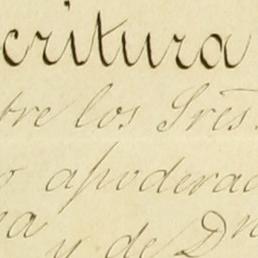 critura
tre los Sres.
o apoderad
ea
y de Dn